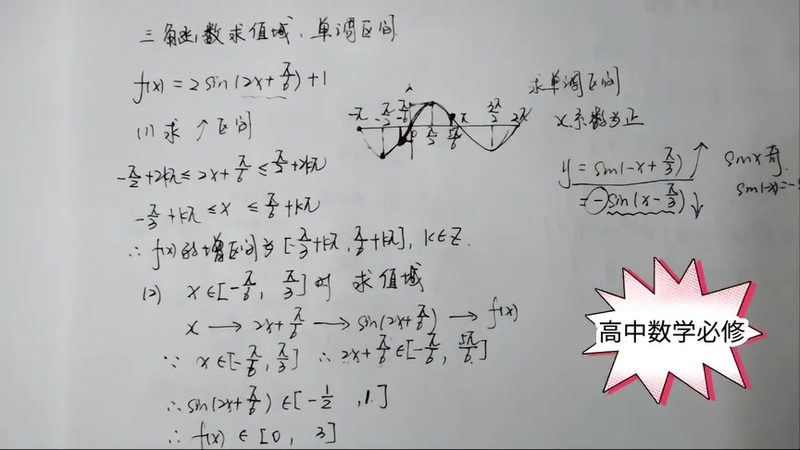 三角函数求值域、单调区间
f(x) = 2 sin(2x+π/6)+1
(1) 求 ↑ 区间
-π/2+2kπ ≤ 2x+π/6 ≤ π/2+2kπ
-π/3+kπ ≤ x ≤ π/6+kπ
∴ f(x)的增区间为[-π/3+kπ, π/6+kπ], k∈Z.
(2) x∈[-π/6, π/3]时 求值域
x → 2x+π/6 → sin(2x+π/6) → f(x)
∵ x∈[-π/6, π/3] ∴ 2x+π/6∈[-π/6, 5π/6]
∴ sin(2x+π/6)∈[-1/2, 1]
∴ f(x) ∈ [0, 3]
-π -π/2 -π/6 0 π/2 5π/6 π 3π/2 2π
求单调区间
x系数为正
y = sin(-x+π/3) ↑
= -sin(x-π/3) ↓
sinx奇
sin(-x)=-s
高中数学必修